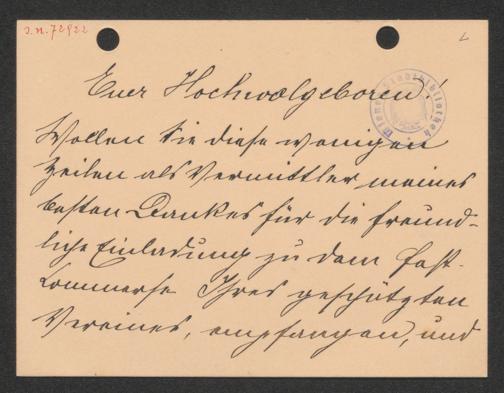 J.N. 72922
Euer Hochwolgeboren!
Wollen Sie diese wenigen
Zeilen als Vermittler meines
besten Dankes für die freund-
liche Einladung zu dem Fest-
kommerse Ihres geschätzten
Vereines, empfangen, und
Wiener Stadtbibliothek